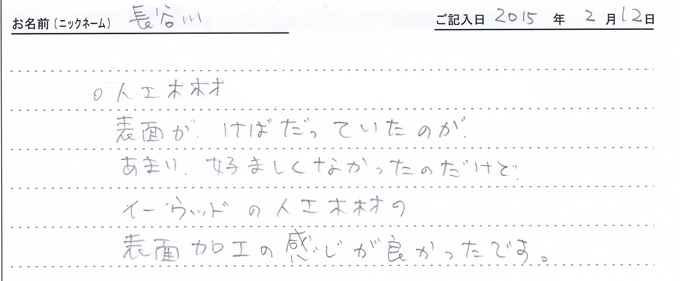 お名前(ニックネーム) 長谷川 ご記入日 2015 年 2 月 12 日
○人工木材
表面が、けばだっていたのが、
あまり、好ましくなかったのだけど、
イーウッドの人工木材の
表面加工の感じが良かったです。